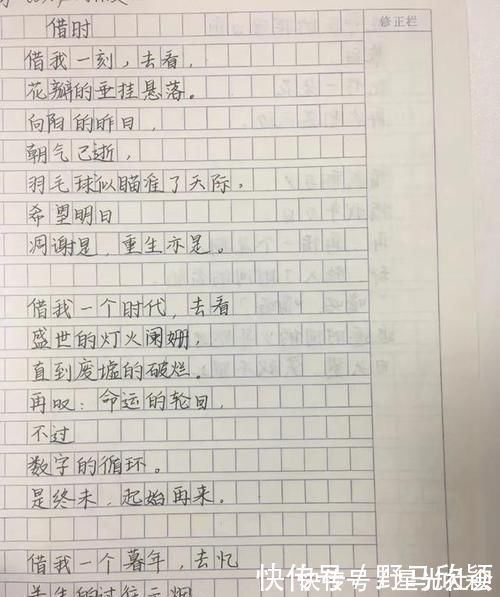 修正栏
借时
借我一刻，去看，
花瓣的垂挂悬落。
向阳的昨日，
朝气已逝，
羽毛球似瞄准了天际，
希望明日
凋谢是，重生亦是。
借我一个时代，去看
盛世的灯火阑姗，
直到废墟的破烂。
再叹：命运的轮回，
不过
数字的循环。
是终末，起始再来。
借我一个暮年，去忆
快传号：野马欣颖
快传号